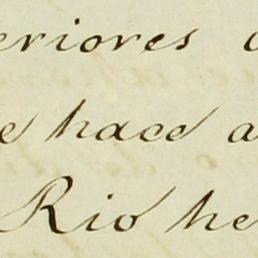 eriores
e hace a
Rio he